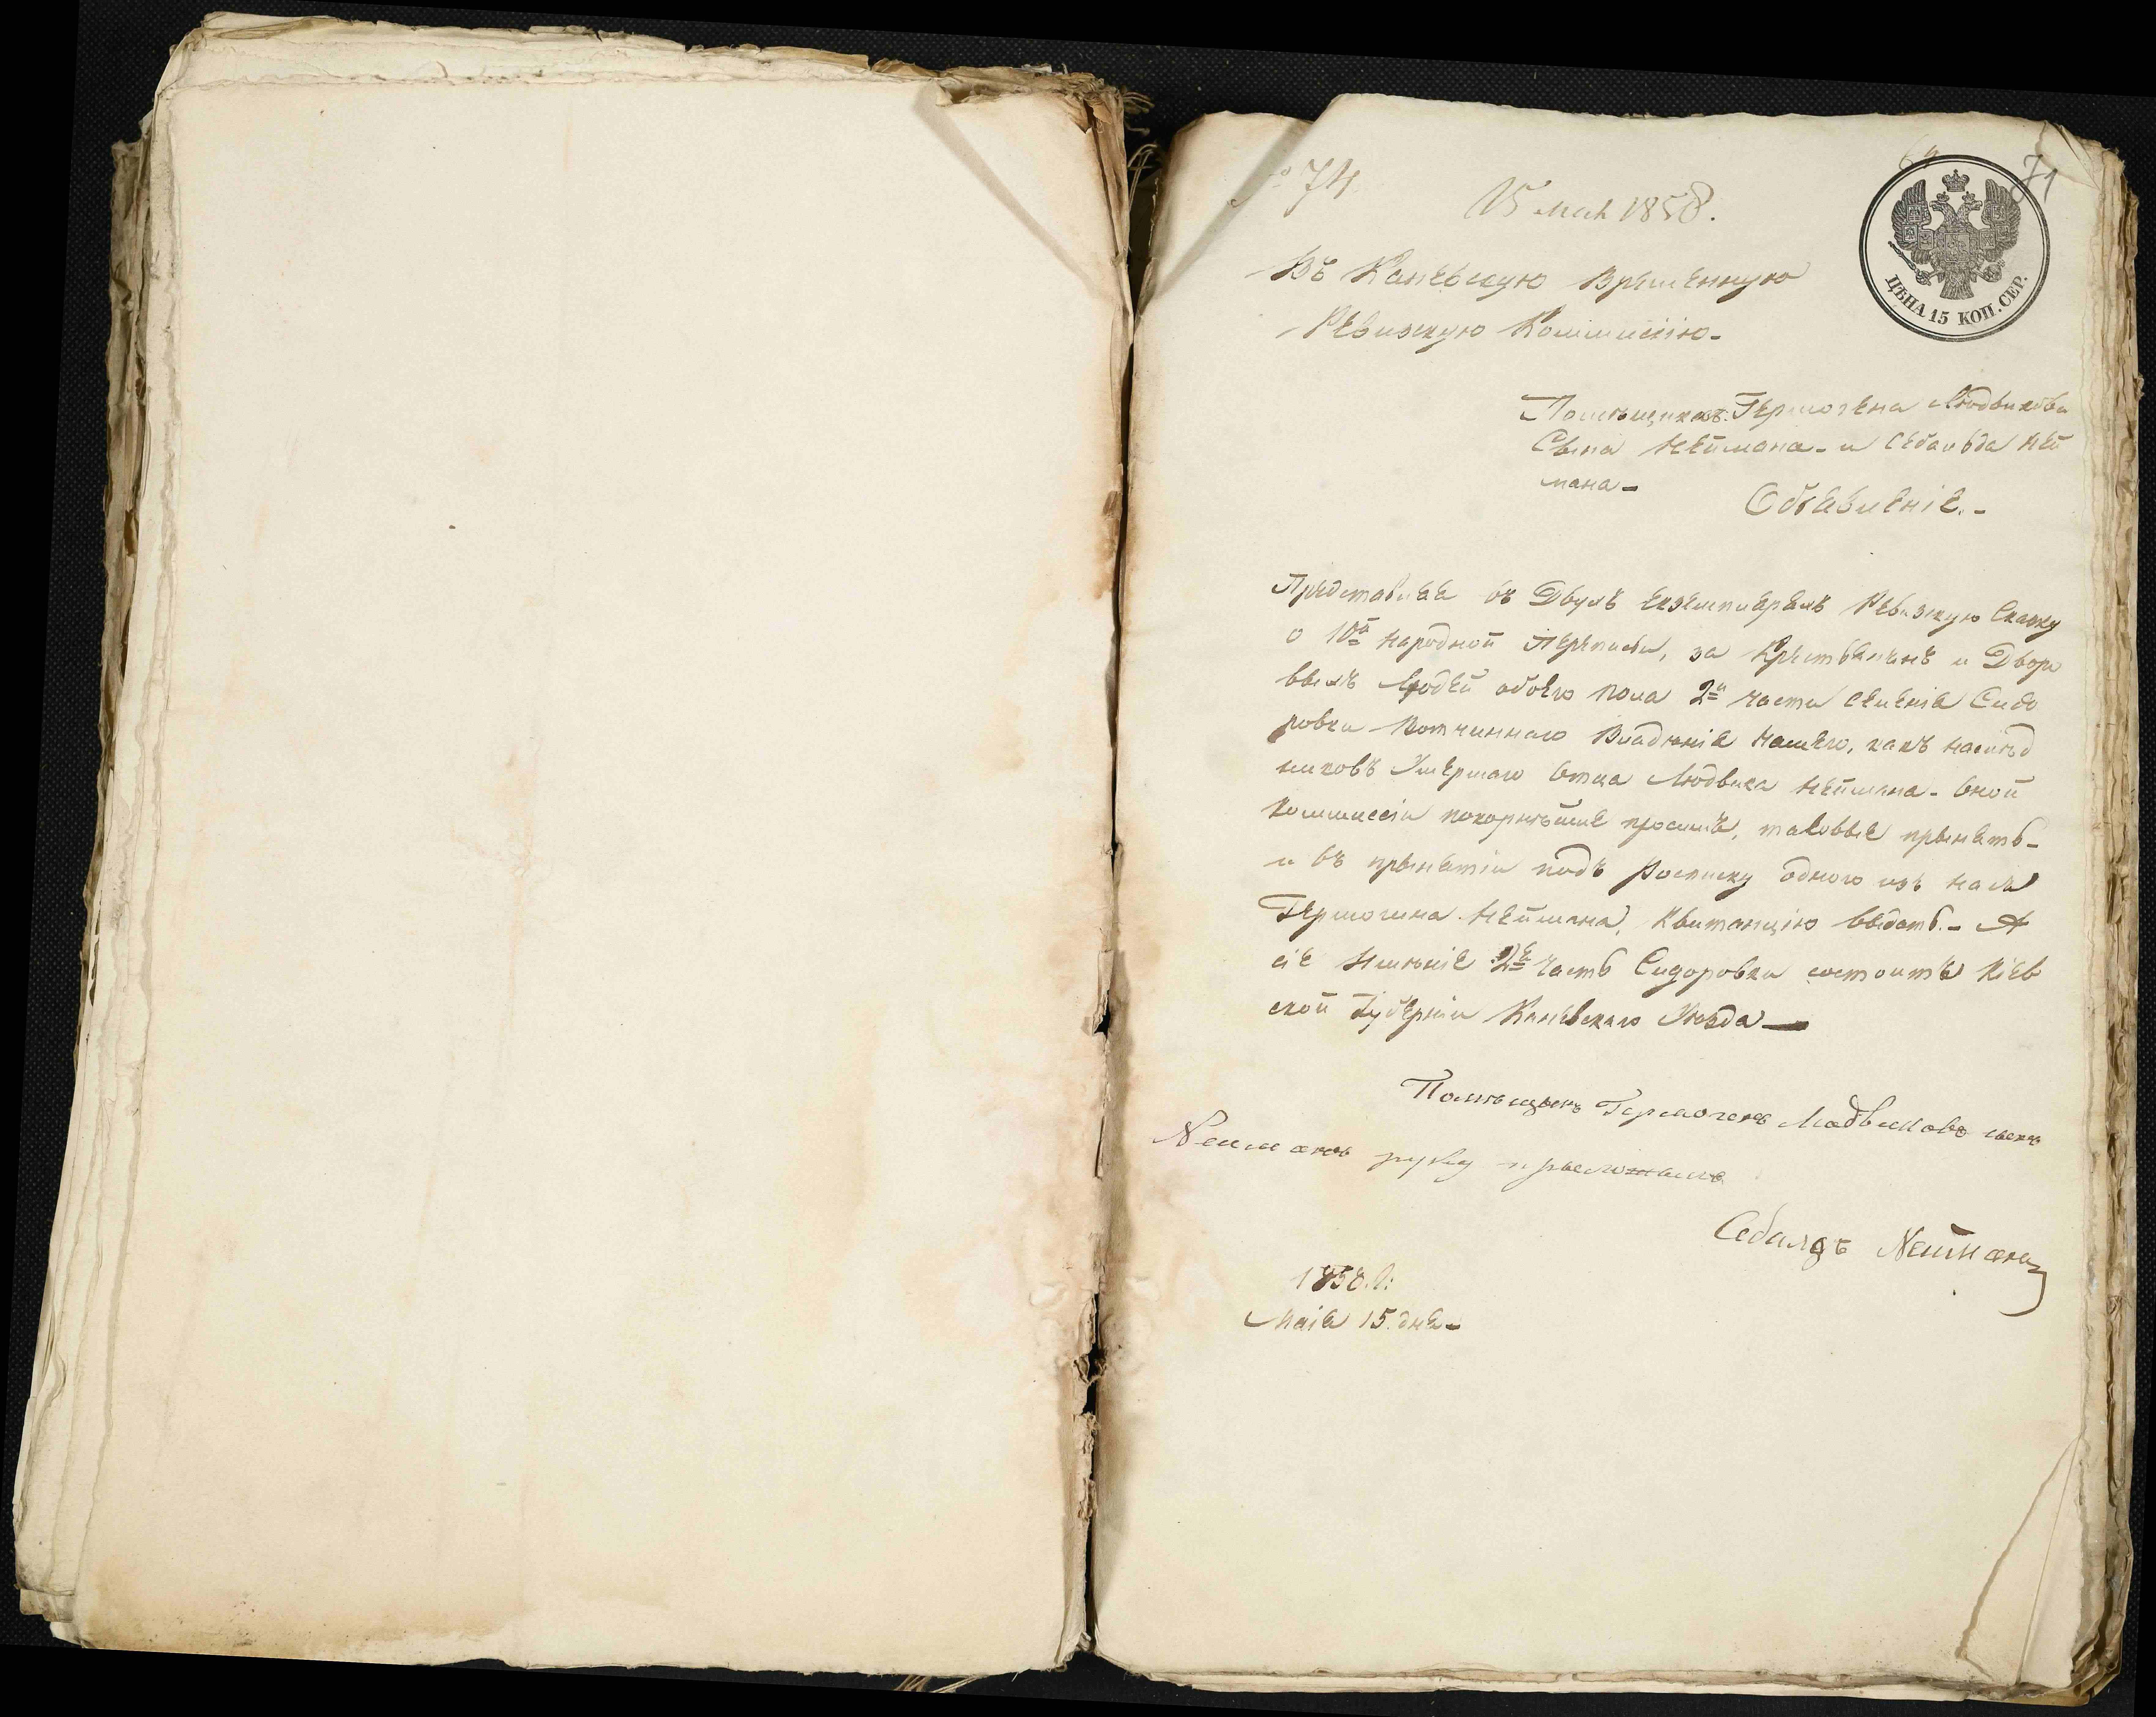 № 74
69
71
15 мая 1858.
ЦѢНА 15 КОП. СЕР.
Въ Каневскую Временную
Ревизкую Коммисію-
Помѣщиковъ: Гермогена Людвикова
Сына Неймана- и Себальда Ней
мана-
Объявленіе.-
Представляя въ Двухъ екземплярахъ Ревизкую Сказку
о 10й Народной Переписи, за Крестьянинъ и Дворо
выхъ Людей обоего пола 2й части селенія Сидо
ровки Вотчиннаго Владѣнія Нашего, какъ наслѣд
никовъ Умершаго Отца Людвика Неймана- Оной
Коммиссіи покорнѣйше просимъ, таковые прынять-
и въ прынятіи подъ Росписку одного изъ насъ
Гермогина Неймана, Квитанцію выдать.- А
сіе Имѣніе 2я часть Сидоровки состоитъ Кіев
ской Губерніи Каневскаго Уѣзда-
Помѣщикъ Гермогенъ Людвиковъ сынъ
Nейманъ руку прыложилъ
Себалдъ Nейманъ
1858. г:
Маія 15. дня-